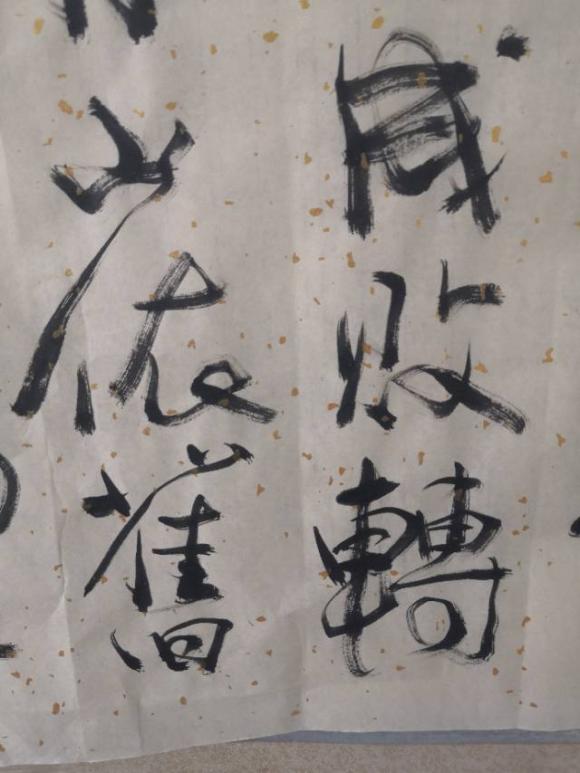 成敗轉
山依舊